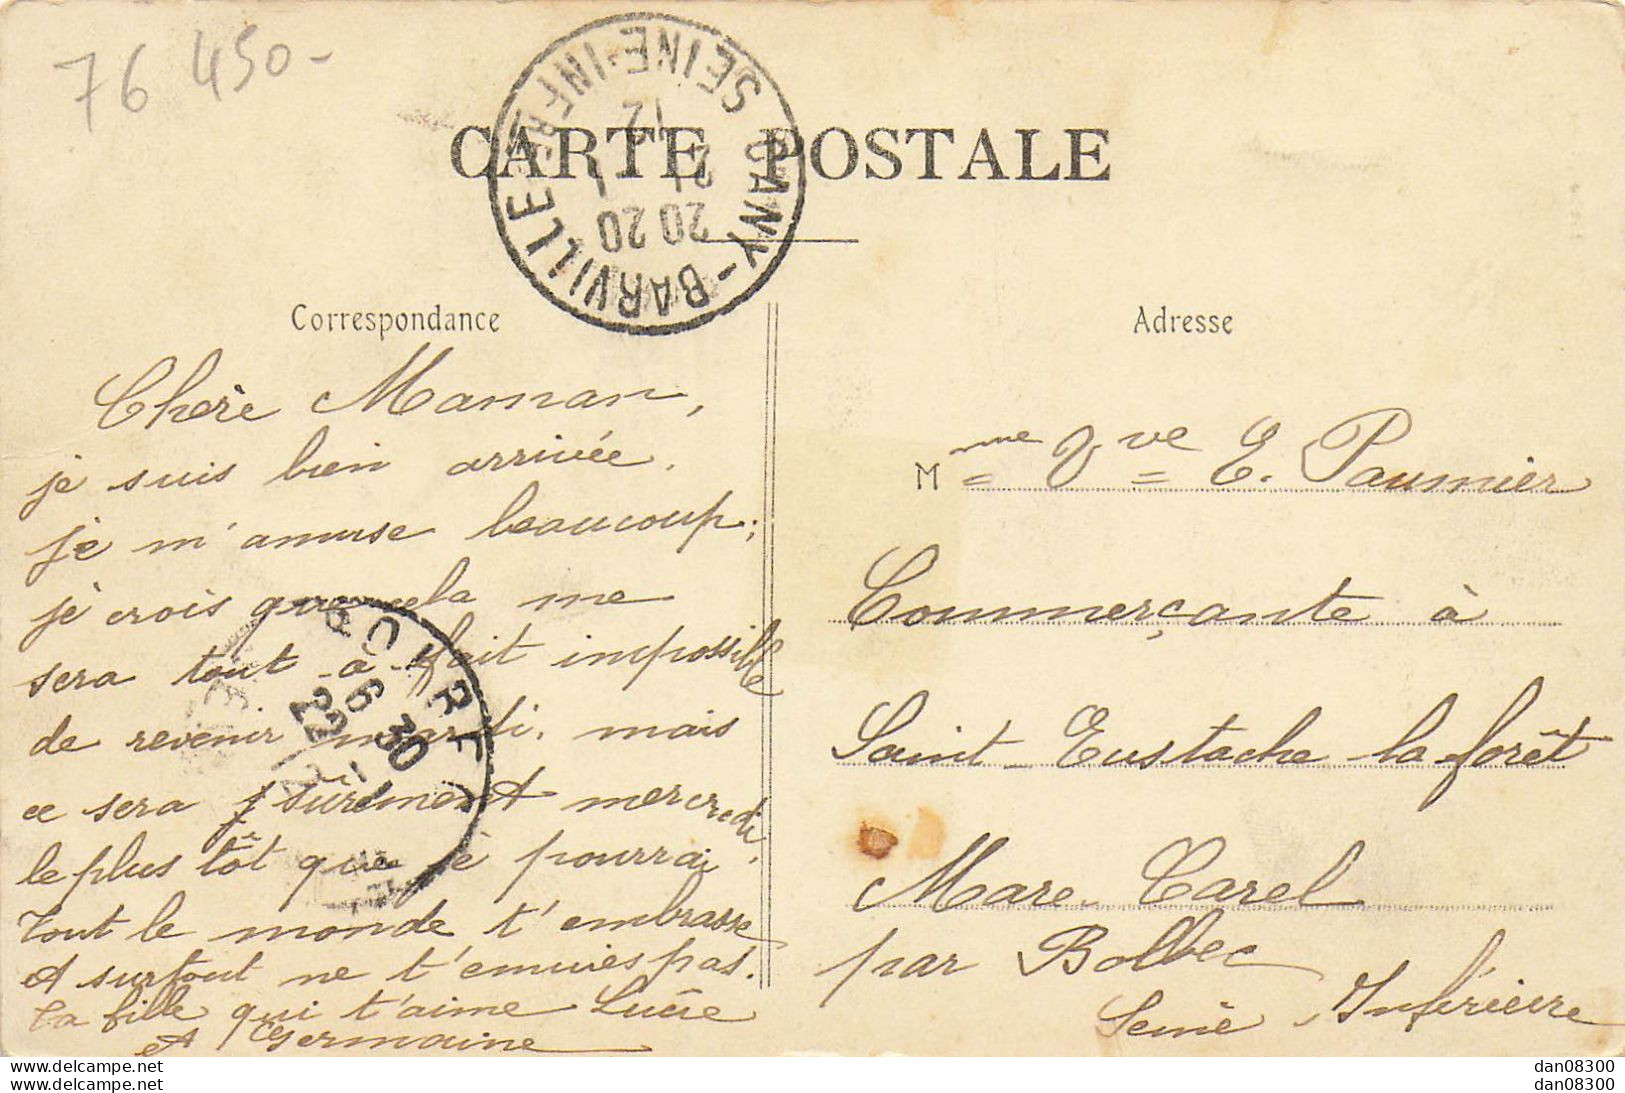 76 450-
CANY-BARVILLE
SEINE-INFRE
20 20
21 - 1
12
CARTE POSTALE
Correspondance
Chère Maman,
je suis bien arrivée.
je m'amuse beaucoup;
je crois que cela me
sera tout-à-fait impossible
de revenir mardi. mais
ce sera sûrement mercredi.
le plus tôt que je pourrai
Tout le monde t'embrasse
et surtout ne t'ennuies pas.
Ta fille qui t'aime Lucie
et Germaine
6 30
22 - 1
12
Adresse
Mme Vve E. Paumier
Commerçante à
Saint-Eustache-la-forêt
Mare-Carel
par Bolbec
Seine-Inférieure
delcampe.net
delcampe.net
dan08300
dan08300